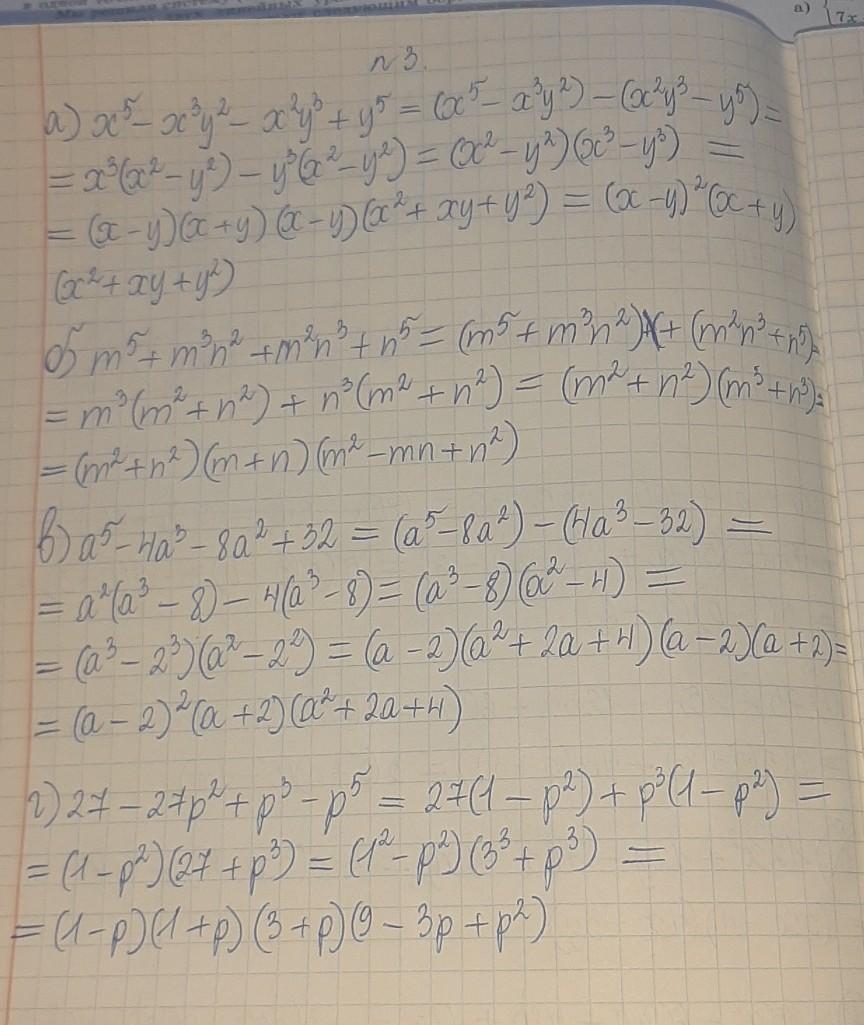 а) {7x
n 3.
а) x⁵ - x³y² - x²y³ + y⁵ = (x⁵ - x³y²) - (x²y³ - y⁵) =
= x³(x² - y²) - y³(x² - y²) = (x² - y²)(x³ - y³) =
= (x - y)(x + y)(x - y)(x² + xy + y²) = (x - y)²(x + y)
(x² + xy + y²)
б) m⁵ + m³n² + m²n³ + n⁵ = (m⁵ + m³n²) + (m²n³ + n⁵) =
= m³(m² + n²) + n³(m² + n²) = (m² + n²)(m³ + n³) =
= (m² + n²)(m + n)(m² - mn + n²)
в) a⁵ - 4a³ - 8a² + 32 = (a⁵ - 8a²) - (4a³ - 32) =
= a²(a³ - 8) - 4(a³ - 8) = (a³ - 8)(a² - 4) =
= (a³ - 2³)(a² - 2²) = (a - 2)(a² + 2a + 4)(a - 2)(a + 2) =
= (a - 2)²(a + 2)(a² + 2a + 4)
г) 27 - 27p² + p³ - p⁵ = 27(1 - p²) + p³(1 - p²) =
= (1 - p²)(27 + p³) = (1² - p²)(3³ + p³) =
= (1 - p)(1 + p)(3 + p)(9 - 3p + p²)